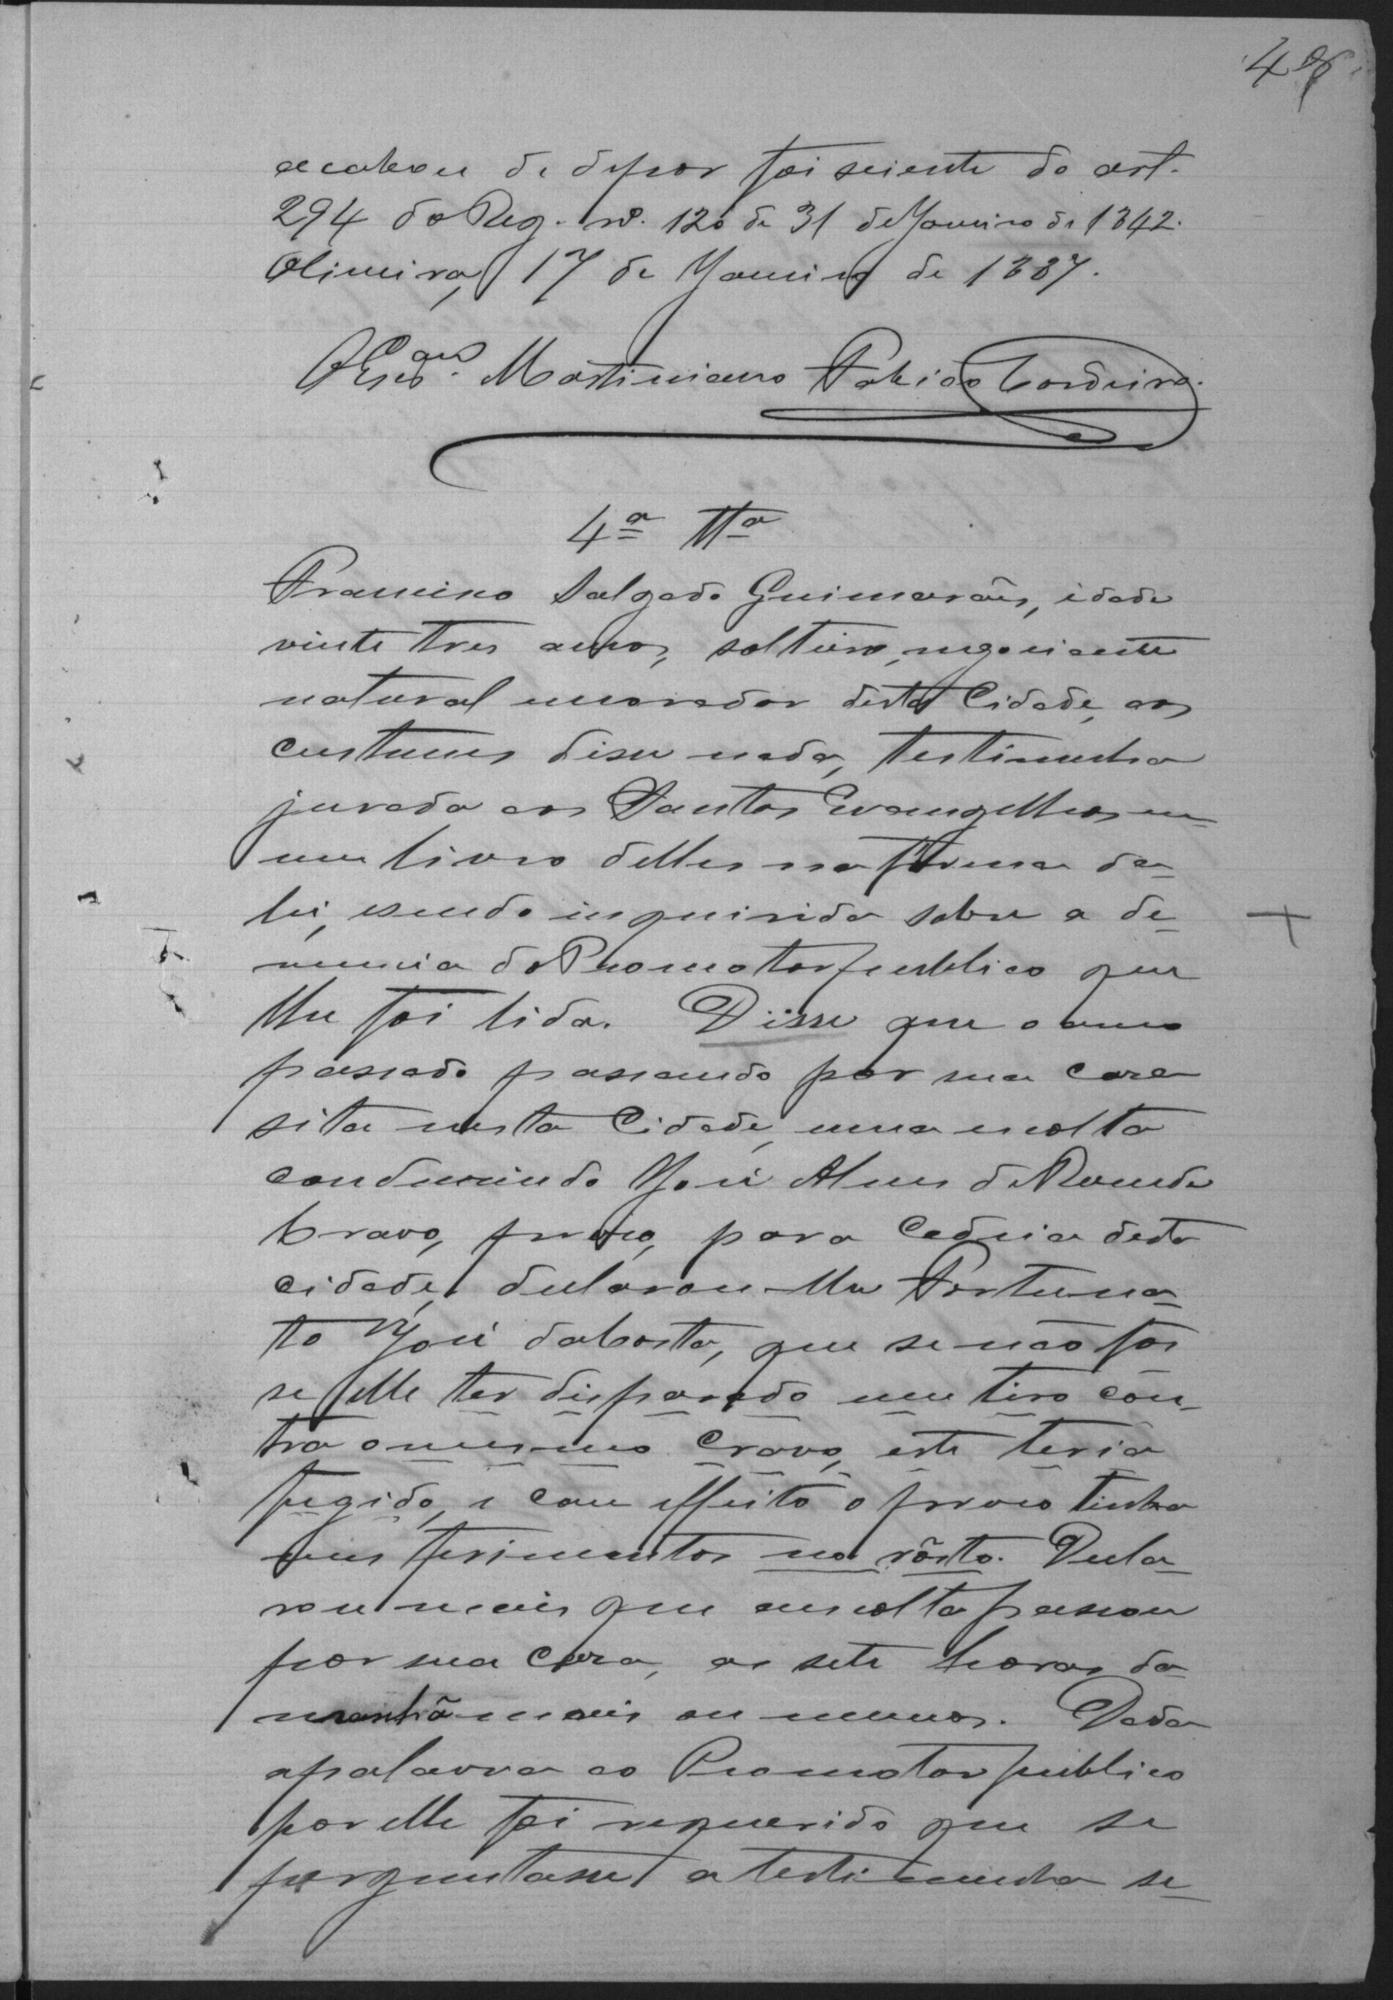 acabou de depor foi sciente do art.
294 do Reg. nº. 120 de 31 de Janeiro de 1842.
Oliveira, 17 de Janeiro de 1887.
O Escᵃᵐ. Martiniano Cordeiro.
4ª Ttª
Francisco Salgado Guimarães, idade
vinte tres annos, solteiro, negociante
natural e morador desta Cidade, aos
custumes disse nada, testimunha
jurada aos Santos Evangelhos em
um livro delles na forma da
lei, e sendo inquirida sobre a de-
nuncia do Promotor publico que
lhe foi lida. Disse que o anno
passado passando por sua casa
sita nesta Cidade, uma escolta
conduzindo José Alves de Resende
Cravo, prezo, para Cadeia desta
cidade, declarou-lhe Fortuna-
to José da Costa, que se não fos
se elle ter disparado um tiro con-
tra o mesmo Cravo, este teria
fugido, e com effeito o prezo tinha
uns ferimentos no rôsto. Decla-
rou mais que a escolta passou
por sua casa, as sete horas da
manhã mais ou menos. Dada
a palavra ao Promotor publico
por elle foi requerido que se
perguntasse a testimunha se-